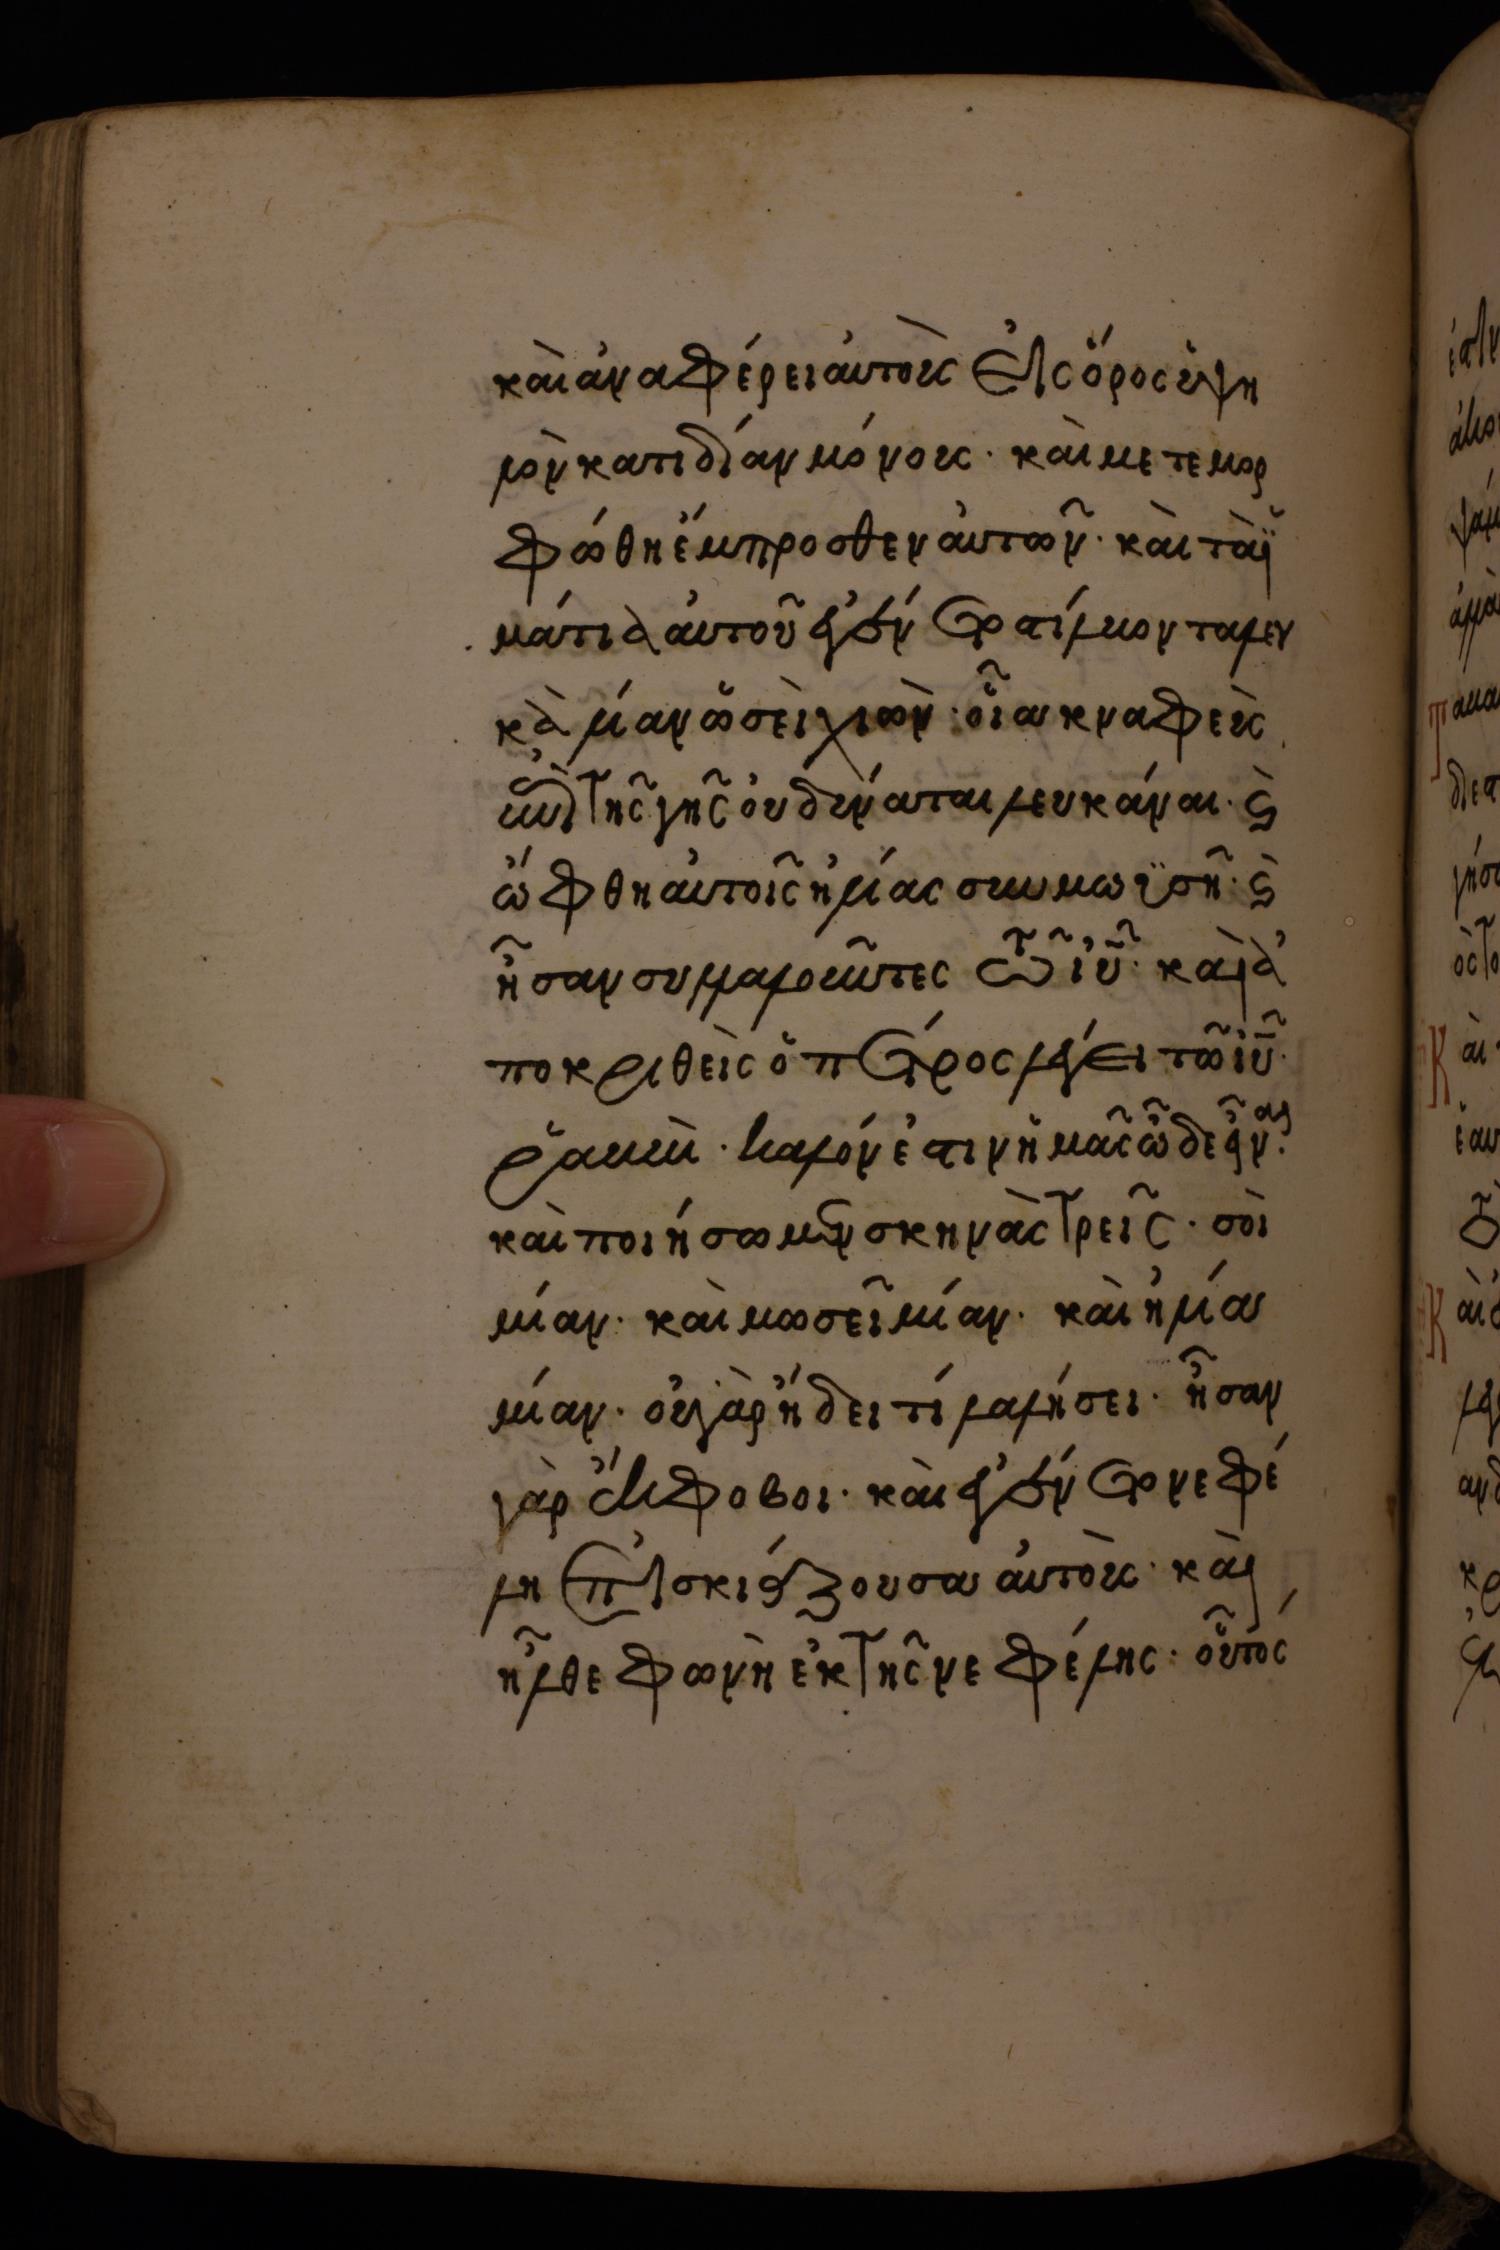 καὶ ἀναφέρει αὐτοὺς εἰς ὄρος ὑψη
λὸν κατιδίαν μόνους · καὶ μετεμορ
φώθη ἔμπροσθεν αὐτῶν · καὶ τὰ ϊ
μάτια αὐτοῦ ἐγένετο στίλβοντα λευ
κὰ λίαν ὡσεὶ χιὼν · οἷα κναφεὺς
ἐπὶ τῆς γῆς οὐ δύναται λευκάναι · ϛ
ὤφθη αὐτοῖς ἠλίας συν μωϋσῆ · ϛ
ἦσαν συλλαλοῦντες τῶ ιῦ · καὶ ἀ
ποκριθεὶς ὁ πέτρος λέγει τῶ ιῦ ·
ῥαββὶ · καλόν ἐστιν ἡμᾶς ὧδε εἶναι ·
καὶ ποιήσωμεν σκηνὰς τρεῖς · σοὶ
μίαν · καὶ μωσεῖ μίαν · καὶ ἠλία
μίαν · οὐ γὰρ ἤδει τί λαλήσει · ἦσαν
γὰρ ἔκφοβοι · καὶ ἐγένετο νεφέ
λη ἐπισκιάζουσα αὐτοὺς · καὶ
ἦλθε φωνὴ ἐκ τῆς νεφέλης · οὗτός